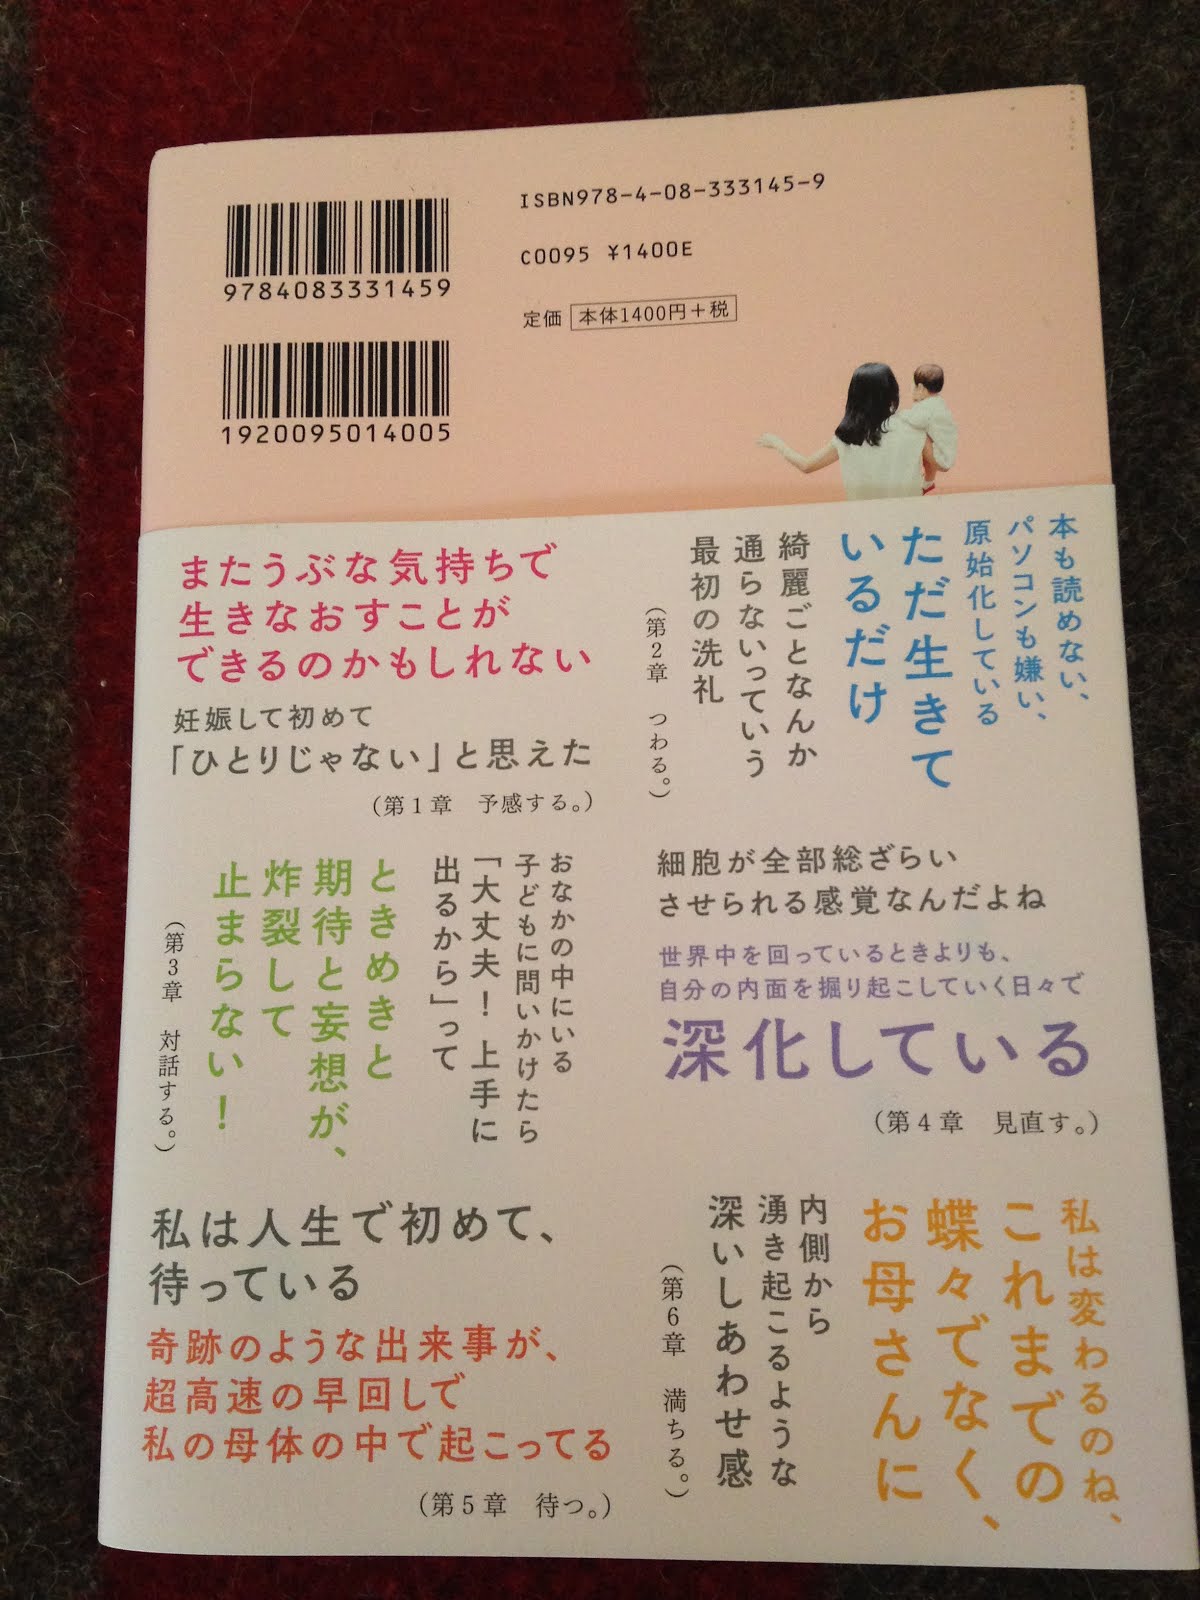 ISBN978-4-08-333145-9
C0095 ¥1400E
定価 本体1400円+税
9784083331459
1920095014005
またうぶな気持ちで
生きなおすことが
できるのかもしれない
妊娠して初めて
「ひとりじゃない」と思えた
(第1章 予感する。)
本も読めない、
パソコンも嫌い、
原始化している
ただ生きて
いるだけ
綺麗ごとなんか
通らないっていう
最初の洗礼
(第2章 つわる。)
おなかの中にいる
子どもに問いかけたら
「大丈夫! 上手に
出るから」って
ときめきと
期待と妄想が、
炸裂して
止まらない!
(第3章 対話する。)
細胞が全部総ざらい
させられる感覚なんだよね
世界中を回っているときよりも、
自分の内面を掘り起こしていく日々で
深化している
(第4章 見直す。)
私は人生で初めて、
待っている
奇跡のような出来事が、
超高速の早回しで
私の母体の中で起こってる
(第5章 待つ。)
私は変わるのね、
これまでの
蝶々でなく、
お母さんに
内側から
湧き起こるような
深いしあわせ感
(第6章 満ちる。)